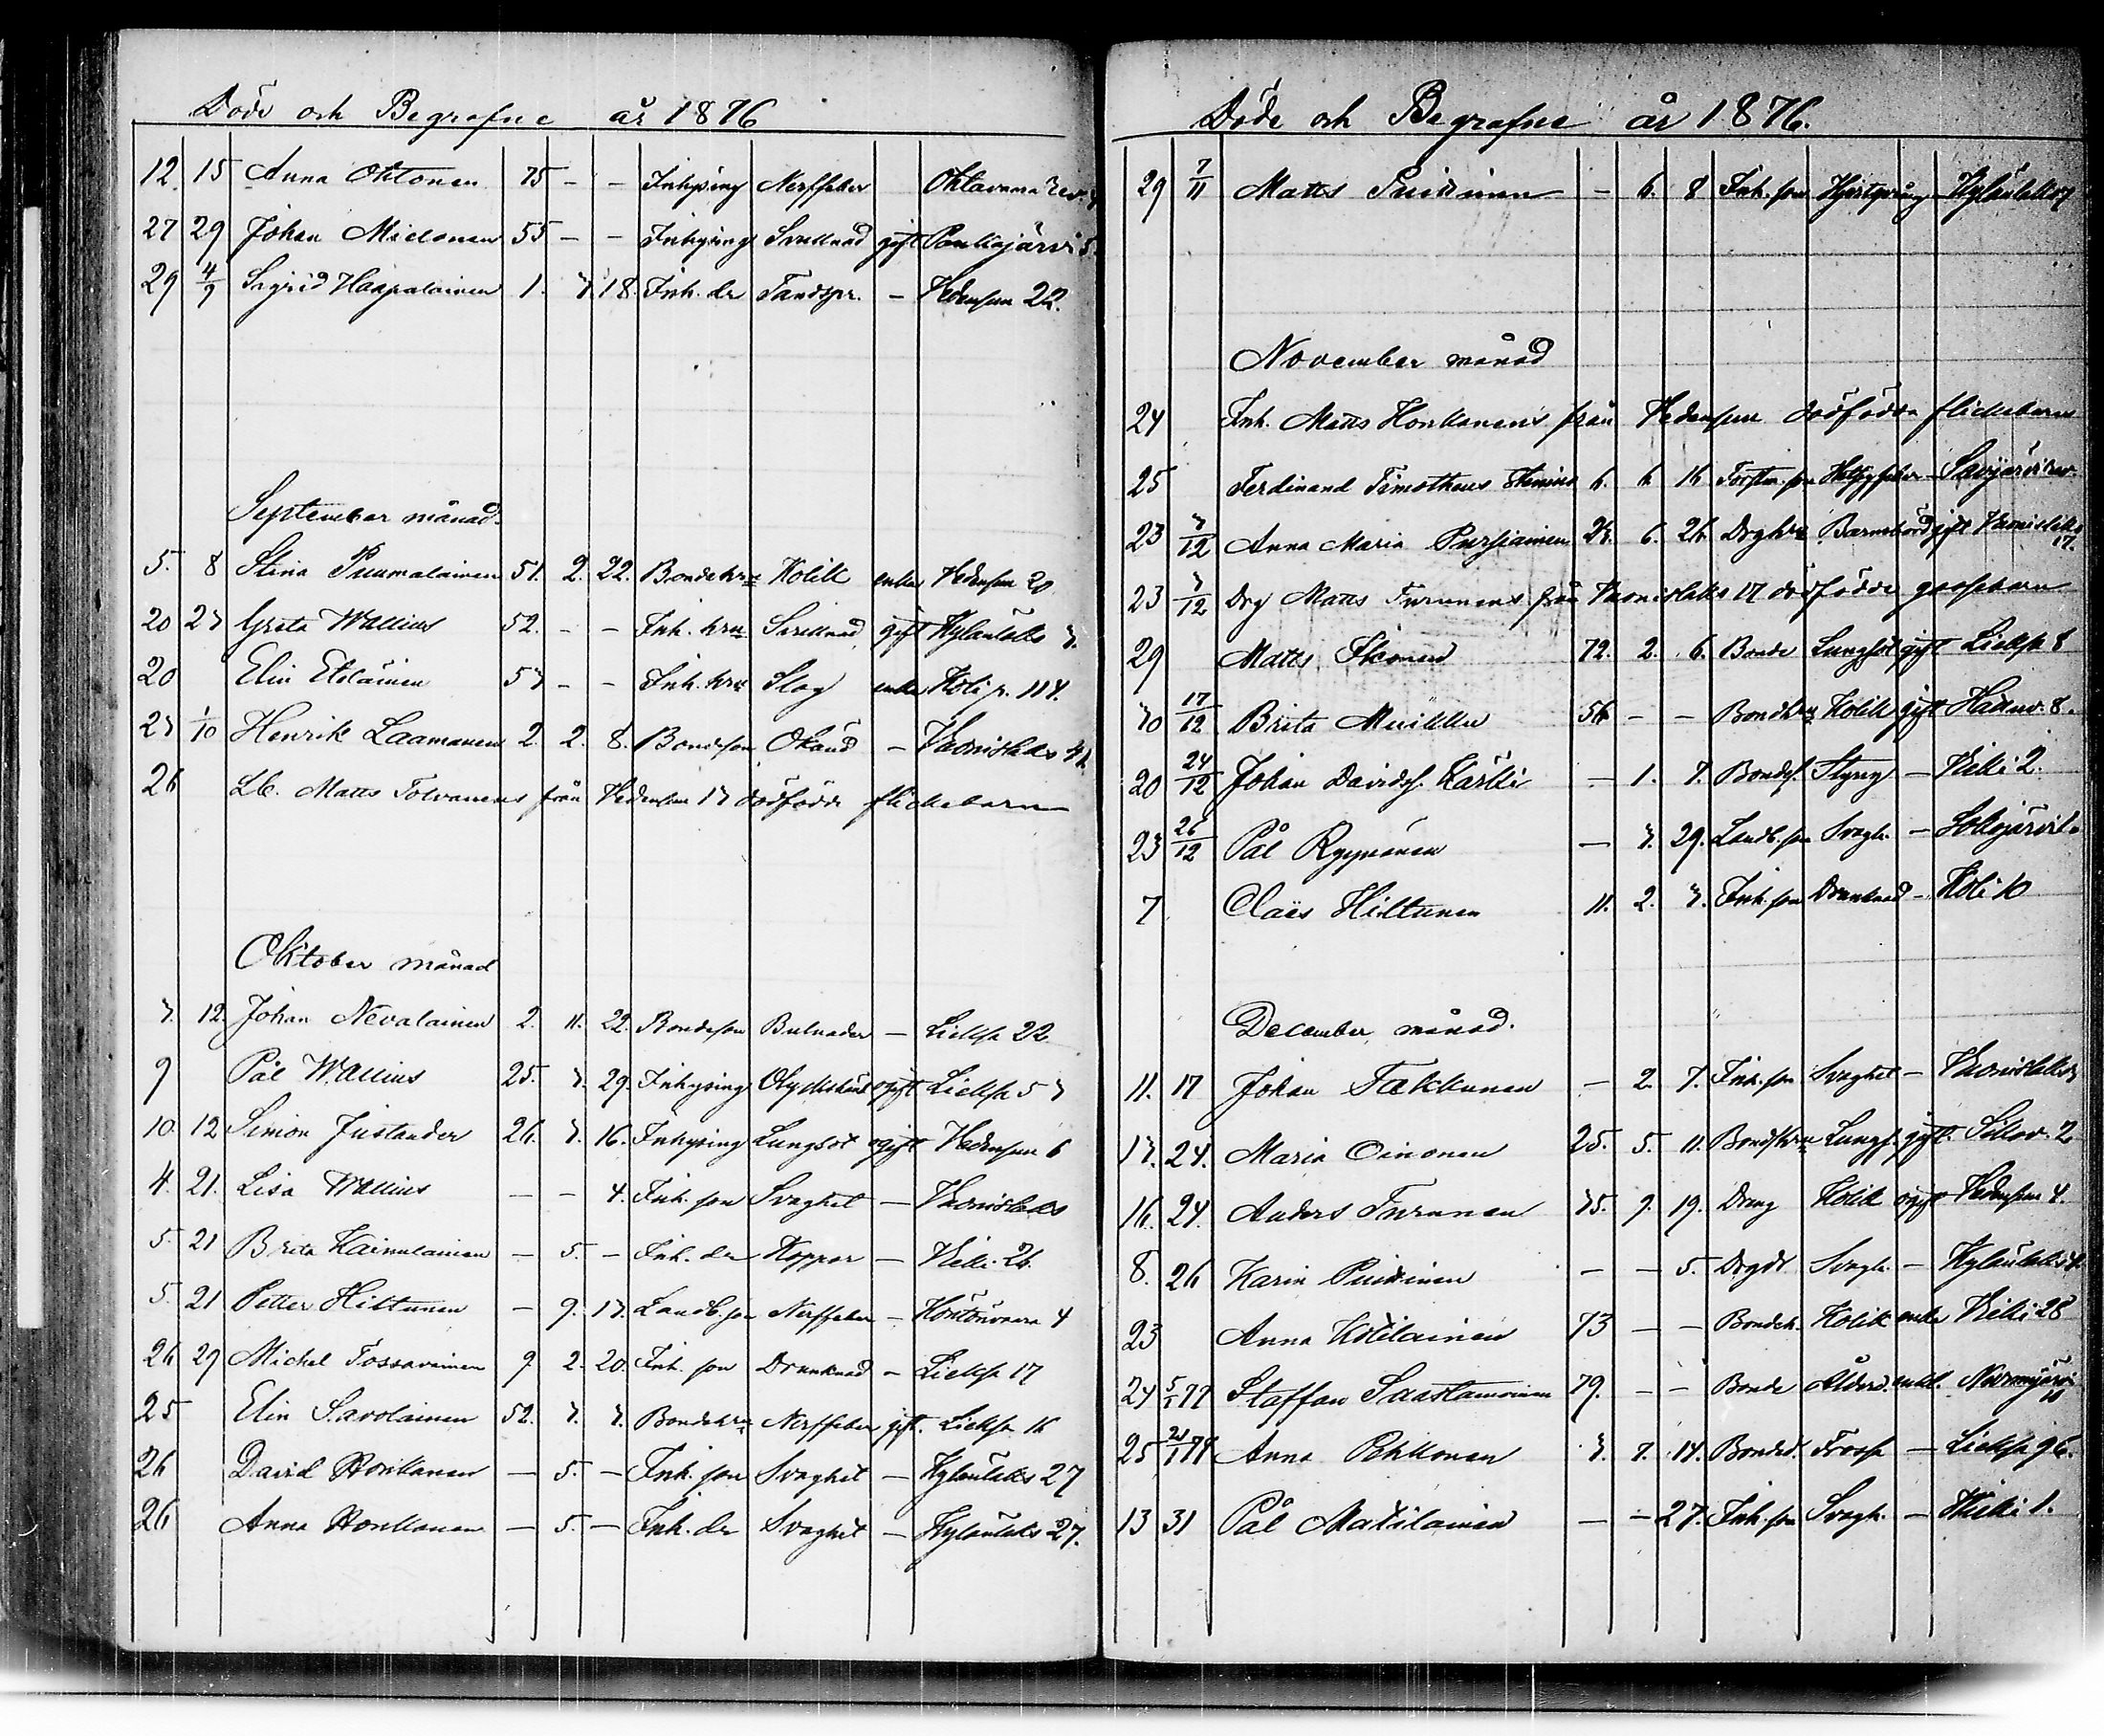 Döde och Begrafne år 1876
12. 15 Anna Oktonen 75 - - Inhysing Nerffeber
27 29 Johan Mielonen 55 - - Inhysing gift Pankajärvi 5.
29 4/9 Sigrid Haapalainen 1. 3. 18. Inh. dr Tandspr. - Hedensun 22.
September månad.
5. 8 Stina Puumalainen 51. 2. 22. Bondehru Kolik enka Hedensun 20
20 23 Greta Wallius 52. - - Inh. hru gift Kylänlaks 3.
20 Elin Eteläinen 53 - - Inh. hru Slag enka Koli p. 114.
23 1/10 Henrik Laamanen 2. 2. 8. Bondeson Okänd - Vuonislaks
26 Lb. Matts Tolvanens från Hedensun 13 dödfödde flickebarn
Oktober månad
3. 12. Johan Nevalainen 2. 11. 22. Bondeson Bulnader - Lieksa 22
9 Pål Wallius 25. 3. 29. Inhysing Olyckshänd. ogift Lieksa 53
10. 12 Simon Justander 26. 3. 16. Inhysing Lungsot ogift Hedensun 6
4. 21. Lisa Wallius - - 4. Inh. son Svaghet - Vuonislaks
5. 21 Brita Kainulainen - 5. - Inh. dr Koppor - Vieki 26.
5. 21 Petter Hiltunen - 9. 13. Landb. son Nerffeber - Höntönvaara 4
26 29 Michel Tossavainen 9 2. 20. Inh. son Drunknad - Lieksa 17
25 Elin Savolainen 52. 3. 3. Bondehru Nerffeber gift. Lieksa 16
26 David Honkanen - 5. - Inh. son Svaghet - Kylänlaks 27
26 Anna Honkanen - 5. - Inh. dr Svaghet - Kylänlaks 27.
Döde och Begrafne år 1876.
29 7/11 Matts Puidinen - 6. 8 Inh. son - Kylänlaks
November månad
24 Inh. Matts Honkanens från Hedensun dödfödda flickebarn
25 Ferdinand Timotheus 6. 6. 16 - Savijärvi
23 3/12 Anna Maria Pursiainen 6. 26. Drghru Barnsbörd gift Vuonislaks 17.
23 3/12 Drg Matts Turunens från Vuonislaks 17 dödfödde gossebarn
29 Matts 72. 2. 6. Bonde Lungsot gift Lieksa 8
30 17/12 Brita Muikku 56 - - Bondhru Kolik gift 8.
20 24/12 Johan Davidss. Kärki - 1. 7. Bonds. - Vieki 2.
23 26/12 Pål Ryynänen - 3. 29. Landb. son Svagh. - Sokojärvi
7 Claës Hiltunen 11. 2. 3. Inh. son Drunknad - Koli 10
December månad.
11. 17 Johan Takkunen - 2. 7. Inh. son Svaghet - Vuonislaks
13. 24. Maria Oinonen 25. 5. 11. Bondhru Lungs. gift. 2.
16. 24. Anders Turunen 35. 9. 19. Dreng Kolik ogift Hedensun 4.
8. 26 Karin Puidinen - - 5. Drgdr Svagh. - Kylänlaks
23 Anna Kotilainen 73 - - Bondeh. Kolik enka Vieki 28
24 5/1 77 Staffan Saastamoinen 79. - - Bonde Ålderd. enkl. Nurmijärvi 10
25 21/1 77 Anna Pehkonen 3. 7. 14. Bondd. Trossk - Lieksa 96.
13 31 Pål Matilainen - - 27. Inh. son Svagh. - Vieki 1.